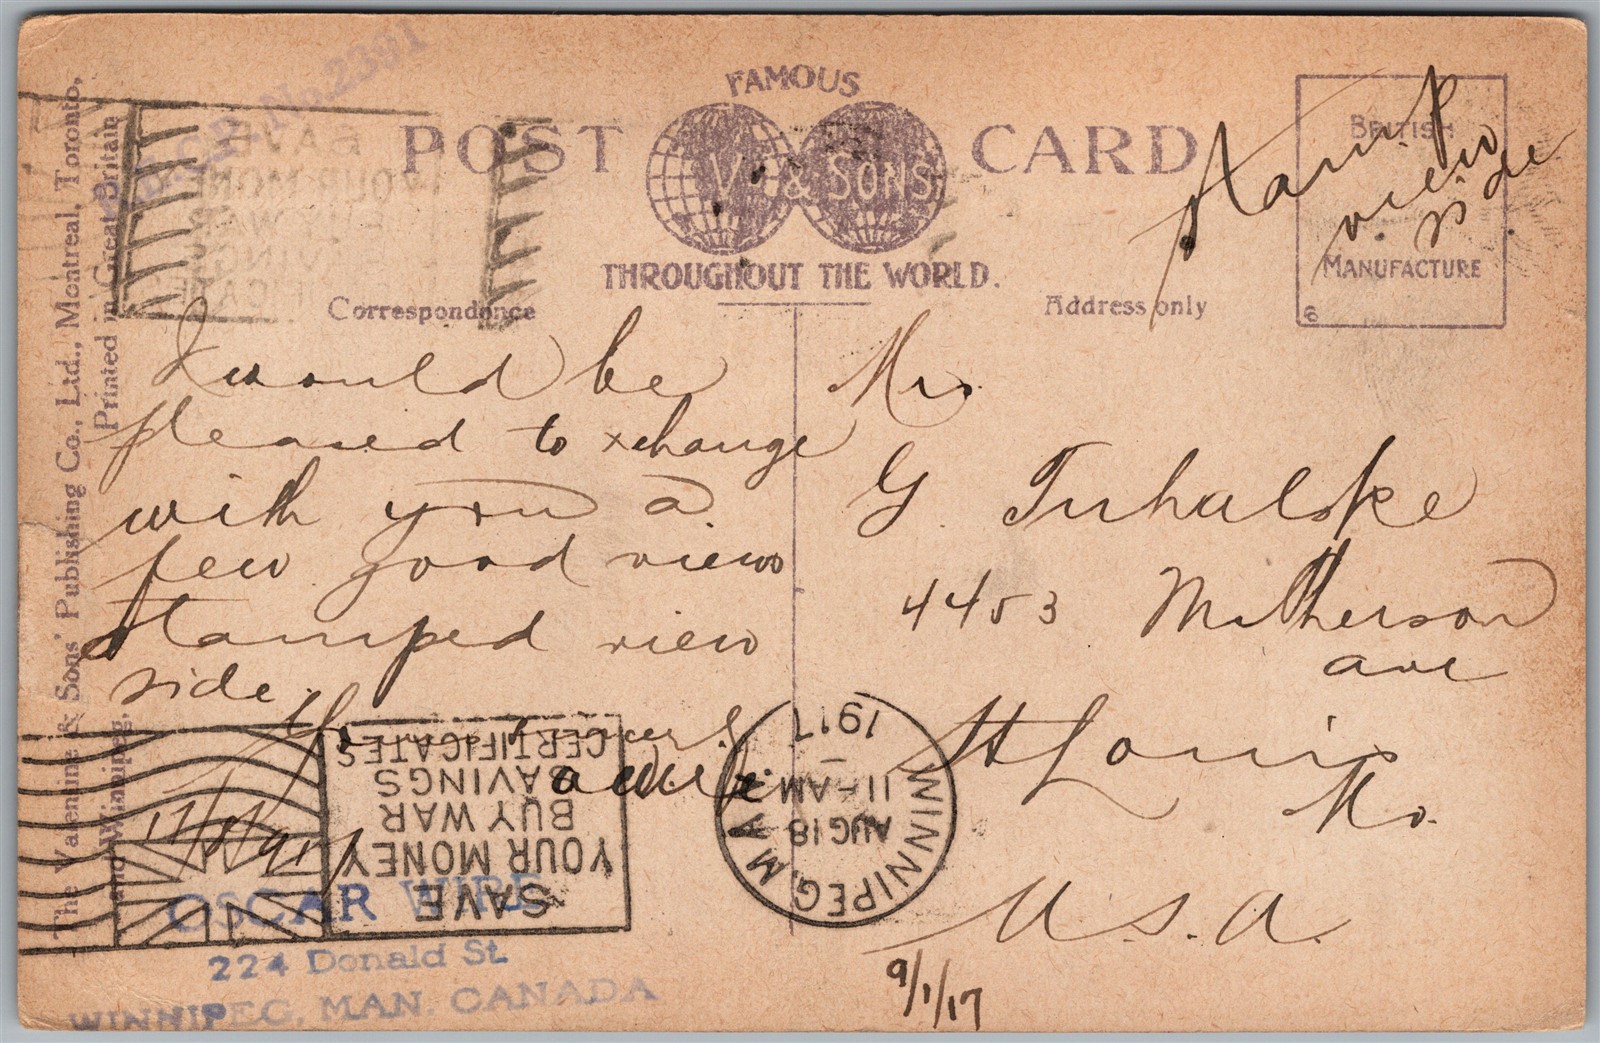 FAMOUS
POST CARD
V. & SONS
THROUGHOUT THE WORLD.
Correspondence
Address only
BRITISH
MANUFACTURE
6
Stamp
view
side
No. 2391
The Valentine & Sons' Publishing Co., Ltd., Montreal, Toronto,
and Winnipeg.
Printed in Great Britain
I would be
pleased to xchange
with you a
few good views
stamped view
side.
Mrs
G.
4453
ave
St Louis
Mo.
U.S.A.
9/1/17
WINNIPEG, MAN.
AUG 18
11-AM
1917
SAVE
YOUR MONEY
BUY WAR
SAVINGS
CERTIFICATES
OSCAR WIBE
224 Donald St.
WINNIPEG, MAN. CANADA